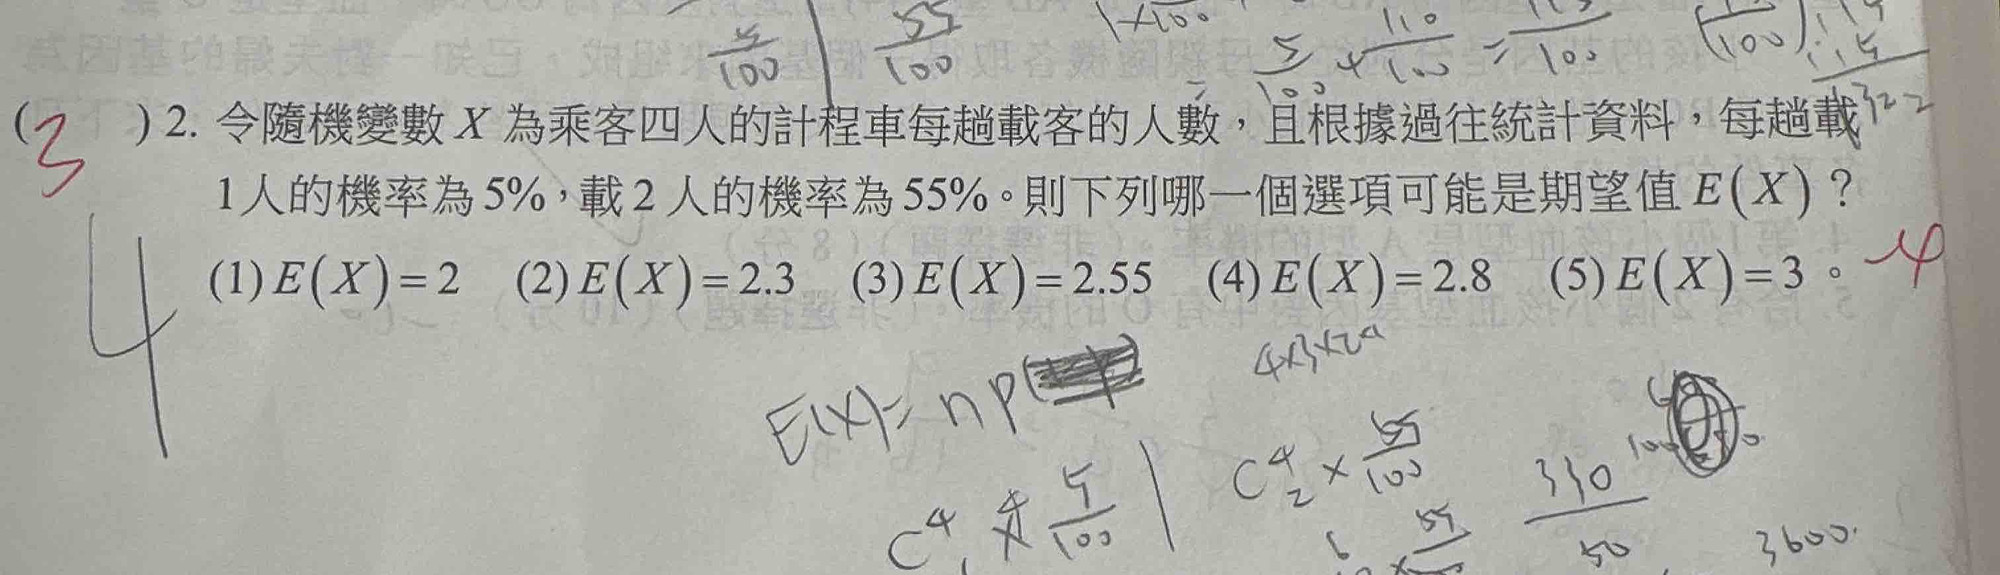 5/100 | 55/100
5/100 × 110/100 = 100
(3) 2. 令隨機變數 X 為乘客四人的計程車每趟載客的人數，且根據過往統計資料，每趟載
1人的機率為 5%，載 2 人的機率為 55%。則下列哪一個選項可能是期望值 E(X)？
4
(1) E(X) = 2 (2) E(X) = 2.3 (3) E(X) = 2.55 (4) E(X) = 2.8 (5) E(X) = 3。 -4
E(X) = np
C⁴₁ × 5/100 | C⁴₂ × 55/100
330/50
6 × 55
3600